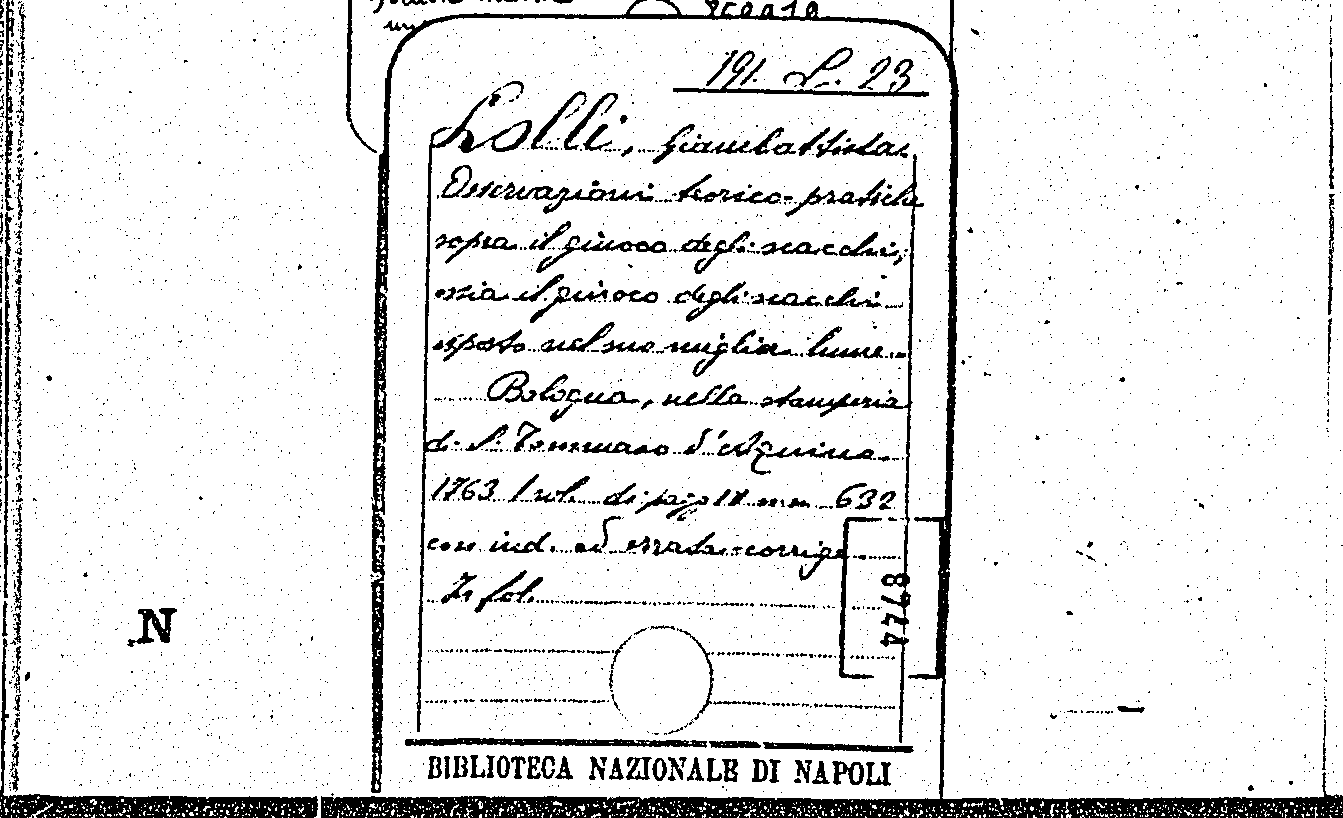 191. L. 23
Lolli, Giambattista.
Osservazioni teorico-pratiche
sopra il giuoco degli scacchi;
ossia il giuoco degli scacchi
esposto nel suo miglior lume.
Bologna, nella stamperia
di S. Tommaso d'Aquino.
1763 1 vol. di pagg. 632
con ind. ed errata-corrige.
In fol.
8744
N
BIBLIOTECA NAZIONALE DI NAPOLI